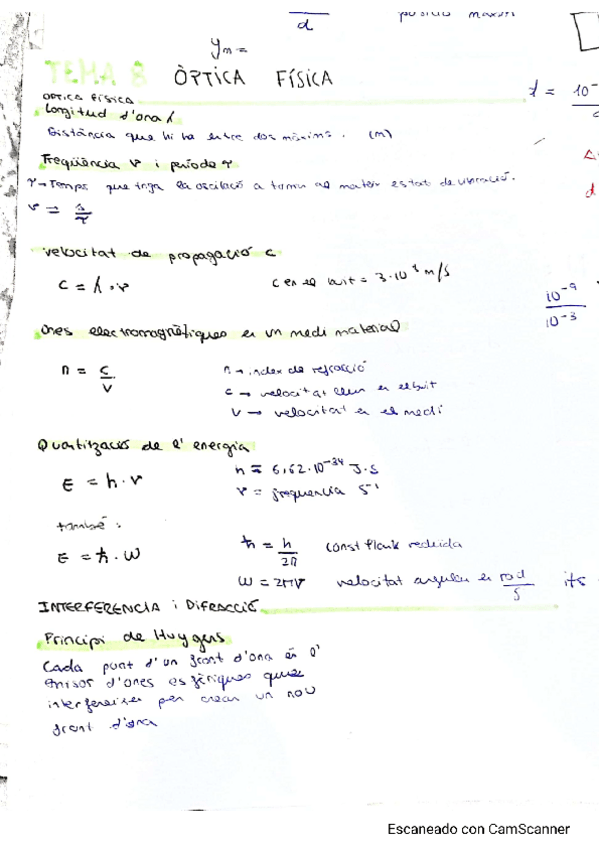 d
posició màxim
yₙ =
TEMA 8 ÒPTICA FÍSICA
OPTICA FÍSICA
Longitud d'ona λ
Distància que hi ha entre dos màxims. (m)
Freqüència ν i període τ
τ → Temps que triga la oscilació a tornar al mateix estat de vibració.
ν = 1/τ
velocitat de propagació c
c = λ·ν
c en el buit = 3·10⁸ m/s
10⁻⁹
10⁻³
Ones electromagnètiques en un medi material
n = c/v
n → index de refracció
c → velocitat llum en el buit
v → velocitat en el medi
Quantització de l'energia
E = h·ν
h = 6,62·10⁻³⁴ J·s
ν = frequencia s⁻¹
també:
E = ħ·ω
ħ = h/2π const Plank reduida
ω = 2πν velocitat angular en rad/s
INTERFERENCIA i DIFRACCIÓ
Principi de Huygens
Cada punt d'un front d'ona és l'
emisor d'ones esfèriques que
interfereixen per crear un nou
front d'ona
Escaneado con CamScanner